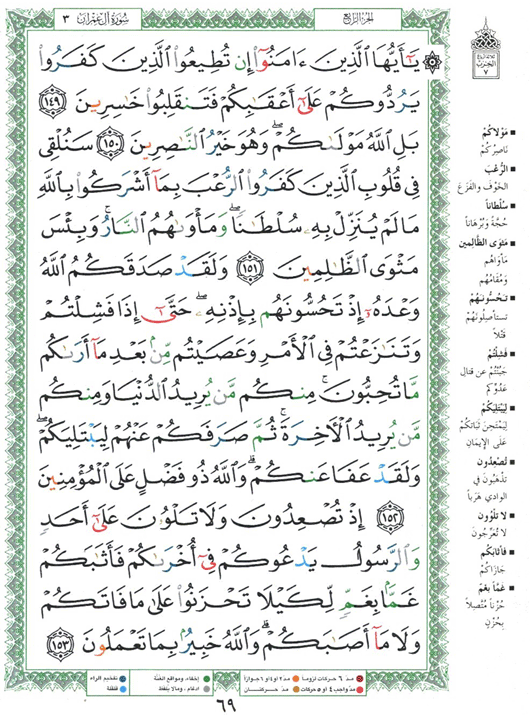 سُورَةُ آلِ عِمْرَان ٣
الجُزءُ الرَّابِعُ
يَٰٓأَيُّهَا ٱلَّذِينَ ءَامَنُوٓا۟ إِن تُطِيعُوا۟ ٱلَّذِينَ كَفَرُوا۟
يَرُدُّوكُمْ عَلَىٰٓ أَعْقَٰبِكُمْ فَتَنقَلِبُوا۟ خَٰسِرِينَ ١٤٩
بَلِ ٱللَّهُ مَوْلَىٰكُمْ ۖ وَهُوَ خَيْرُ ٱلنَّٰصِرِينَ ١٥٠ سَنُلْقِى
فِى قُلُوبِ ٱلَّذِينَ كَفَرُوا۟ ٱلرُّعْبَ بِمَآ أَشْرَكُوا۟ بِٱللَّهِ
مَا لَمْ يُنَزِّلْ بِهِۦ سُلْطَٰنًا ۖ وَمَأْوَىٰهُمُ ٱلنَّارُ ۚ وَبِئْسَ
مَثْوَى ٱلظَّٰلِمِينَ ١٥١ وَلَقَدْ صَدَقَكُمُ ٱللَّهُ
وَعْدَهُۥٓ إِذْ تَحُسُّونَهُم بِإِذْنِهِۦ ۖ حَتَّىٰٓ إِذَا فَشِلْتُمْ
وَتَنَٰزَعْتُمْ فِى ٱلْأَمْرِ وَعَصَيْتُم مِّنۢ بَعْدِ مَآ أَرَىٰكُم
مَّا تُحِبُّونَ ۚ مِنكُم مَّن يُرِيدُ ٱلدُّنْيَا وَمِنكُم
مَّن يُرِيدُ ٱلْأَخِرَةَ ۚ ثُمَّ صَرَفَكُمْ عَنْهُمْ لِيَبْتَلِيَكُمْ ۖ
وَلَقَدْ عَفَا عَنكُمْ ۗ وَٱللَّهُ ذُو فَضْلٍ عَلَى ٱلْمُؤْمِنِينَ
١٥٢ إِذْ تُصْعِدُونَ وَلَا تَلْوُۥنَ عَلَىٰٓ أَحَدٍ
وَٱلرَّسُولُ يَدْعُوكُمْ فِىٓ أُخْرَىٰكُمْ فَأَثَٰبَكُمْ
غَمًّۢا بِغَمٍّ لِّكَيْلَا تَحْزَنُوا۟ عَلَىٰ مَا فَاتَكُمْ
وَلَا مَآ أَصَٰبَكُمْ ۗ وَٱللَّهُ خَبِيرٌۢ بِمَا تَعْمَلُونَ ١٥٣
الحِزْب
٧
مَوْلاكُمْ
نَاصِرُكُمْ
الرُّعْبَ
الخَوْفَ وَالفَزَعَ
سُلْطَاناً
حُجَّةً وَبُرْهَاناً
مَثْوَى الظَّالِمِينَ
مَأْوَاهُم
وَمُقَامُهُم
تَحُسُّونَهُمْ
تَستأصِلُونَهُمْ
قَتْلاً
فَشِلْتُمْ
جَبُنْتُمْ عن قتالِ
عَدُوِّكُم
لِيَبْتَلِيَكُمْ
لِيَمْتَحِنَ ثَبَاتَكُمْ
عَلَى الإيمَانِ
تُصْعِدُونَ
تَذهَبُونَ في
الوادي هَرَباً
لا تَلْوُونَ
لا تُعَرِّجُونَ
فَأثَابَكُمْ
جَازَاكُمْ
غَمّاً بِغَمّ
حُزناً مُتَّصِلاً
بِحُزْنٍ
مدّ ٦ حركات لزوماً
مدّ ٢ أو ٤ أو ٦ جوازاً
إخفاء، ومواقع الغُنَّة
تفخيم الراء
مدّ واجب ٤ أو ٥ حركات
مدّ حركتان
إدغام، وما لا يُلفَظ
قلقلة
٦٩